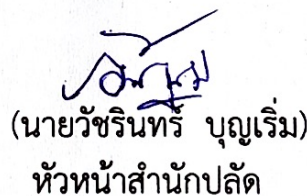 (นายวัชรินทร์ บุญเริ่ม)
หัวหน้าสำนักปลัด